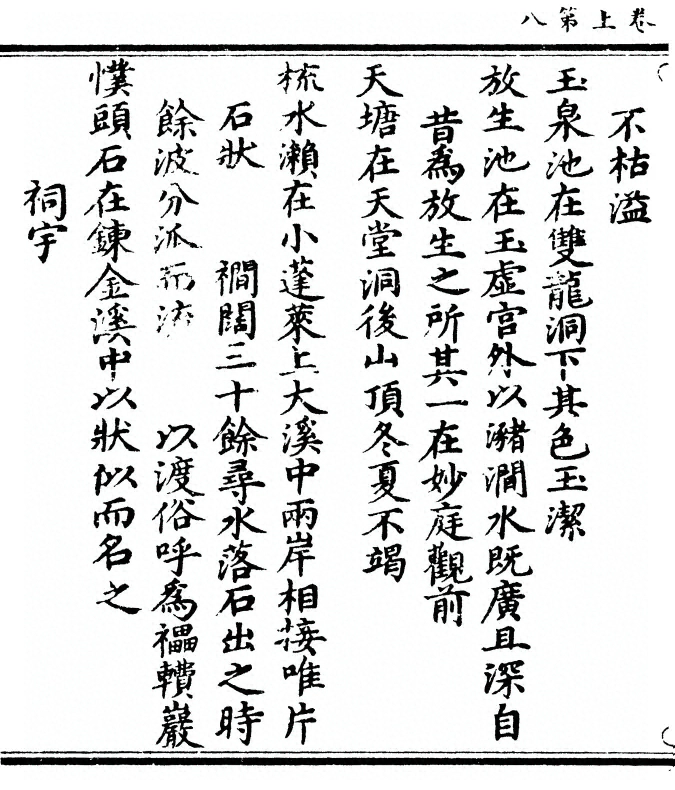 卷上第八
不枯溢
玉泉池在雙龍洞下其色玉潔
放生池在玉虛宮外以瀦澗水既廣且深自
昔爲放生之所其一在妙庭觀前
天塘在天堂洞後山頂冬夏不竭
梳水瀨在小蓬萊上大溪中兩岸相接唯片
石狀 襉闊三十餘尋水落石出之時
餘波分派而流 以渡俗呼爲襵䡽巖
幞頭石在鍊金溪中以狀似而名之
祠宇